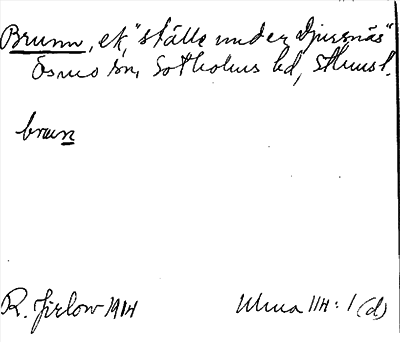 Brunn, ek, "ställe under Djursnäs"
Ösmo sn, Sotholms hd, Sthmsl.
brun̲n̲
R. Jirlow 1914 Ulma 114:1 (d)